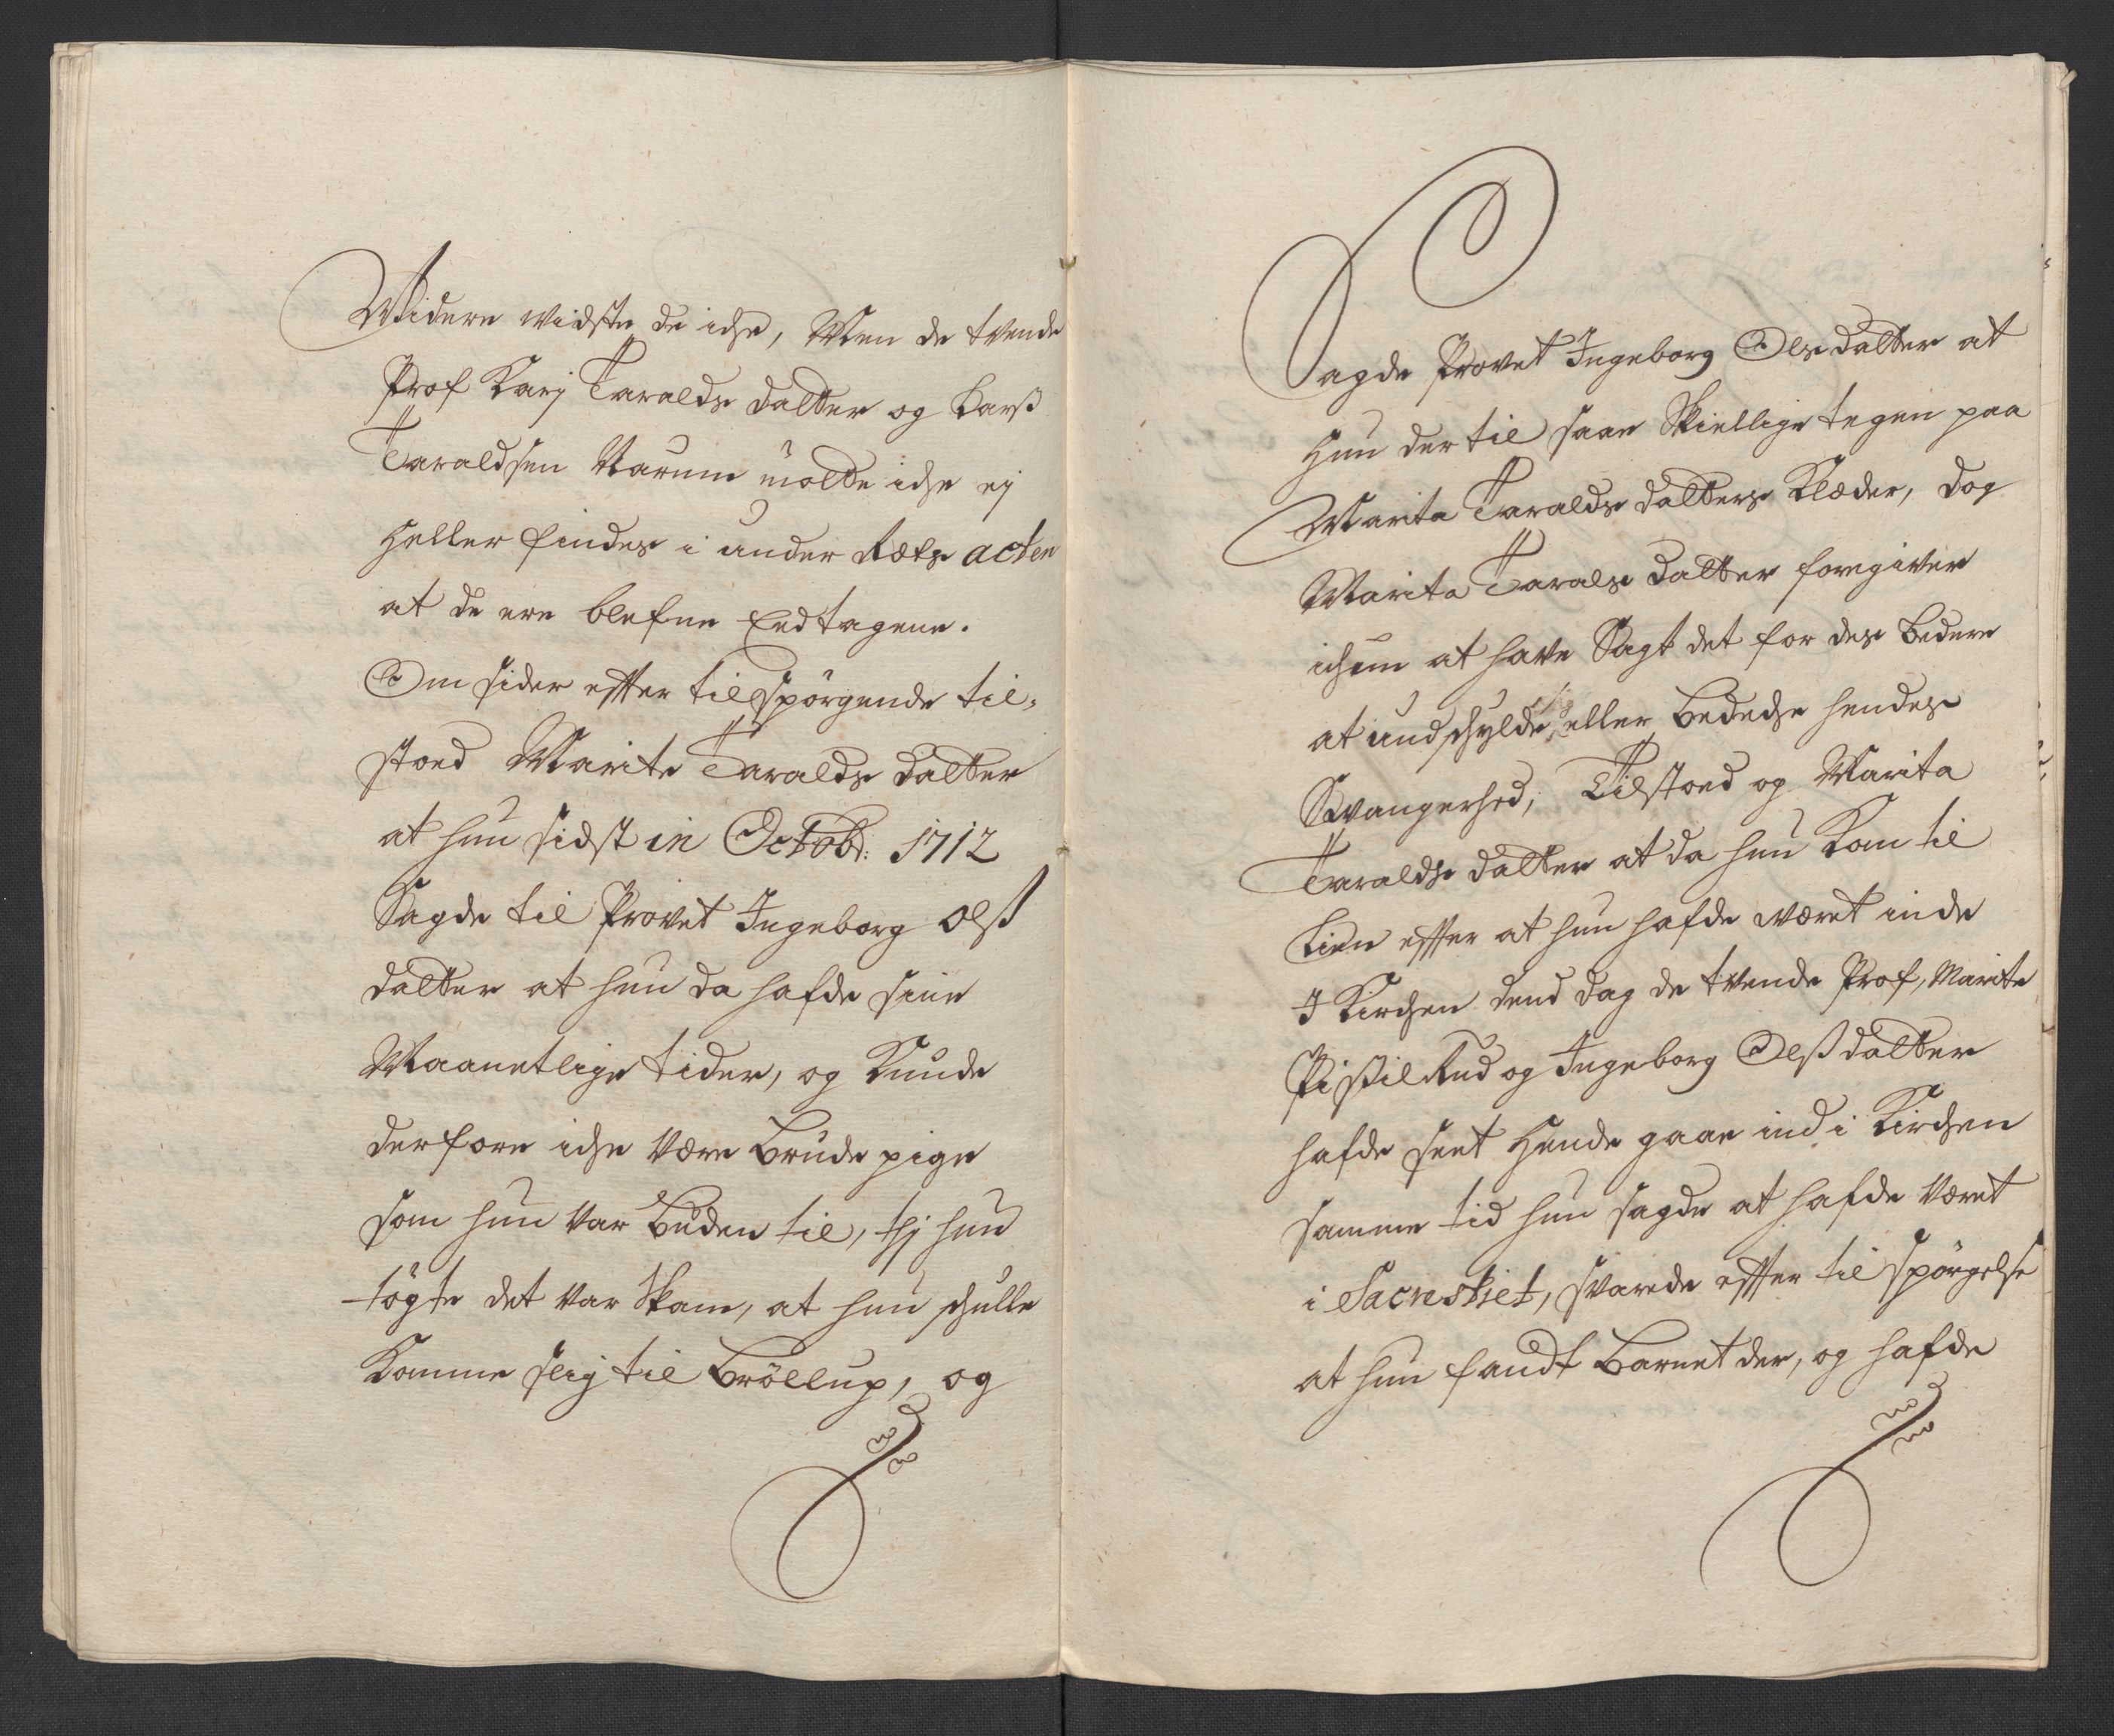 Widere widste de iche, Men de tvende
Prof Karj Taralds datter og Larß
Taraldsen Narum mötte iche ej
heller findes i under Rætz acten
at de ere blefne Eedtagene.
Om sider effter tilspörgende til,
stoed Marite Taralds datter
at hun sidst in Octobr: 1712
Sagde til Provet Ingeborg Olß
datter at hun da hafde sine
Maanetlige tider, og Kunde
derfore iche være Brude pige
som hun var buden til, thj hun
tögte det var Skam, at hun schulle
Komme slig til Bröllup, og
Sagde Provet Ingeborg Ols datter at
hun der til saae Skiellige tegen paa
Marita Taralds datters Klæder, dog
Marita Tarals datter foregiver
at have Sagt det for des bedere
at undschylde sig eller bedeche hendes
Svangerhed, Tilstoed og Marita
Taralds datter at da hun Kom til
Lien effter at hun hafde været inde
I Kirchen dend dag de tvende Prof, Marite
Pistilrud og Ingeborg Olß datter
hafde seet hende gaae ind i Kirchen
samme tid hun sagde at hafde været
i Sacrestiet, svarede effter til spörgelse
at hun fandt Barnet der, og hafde